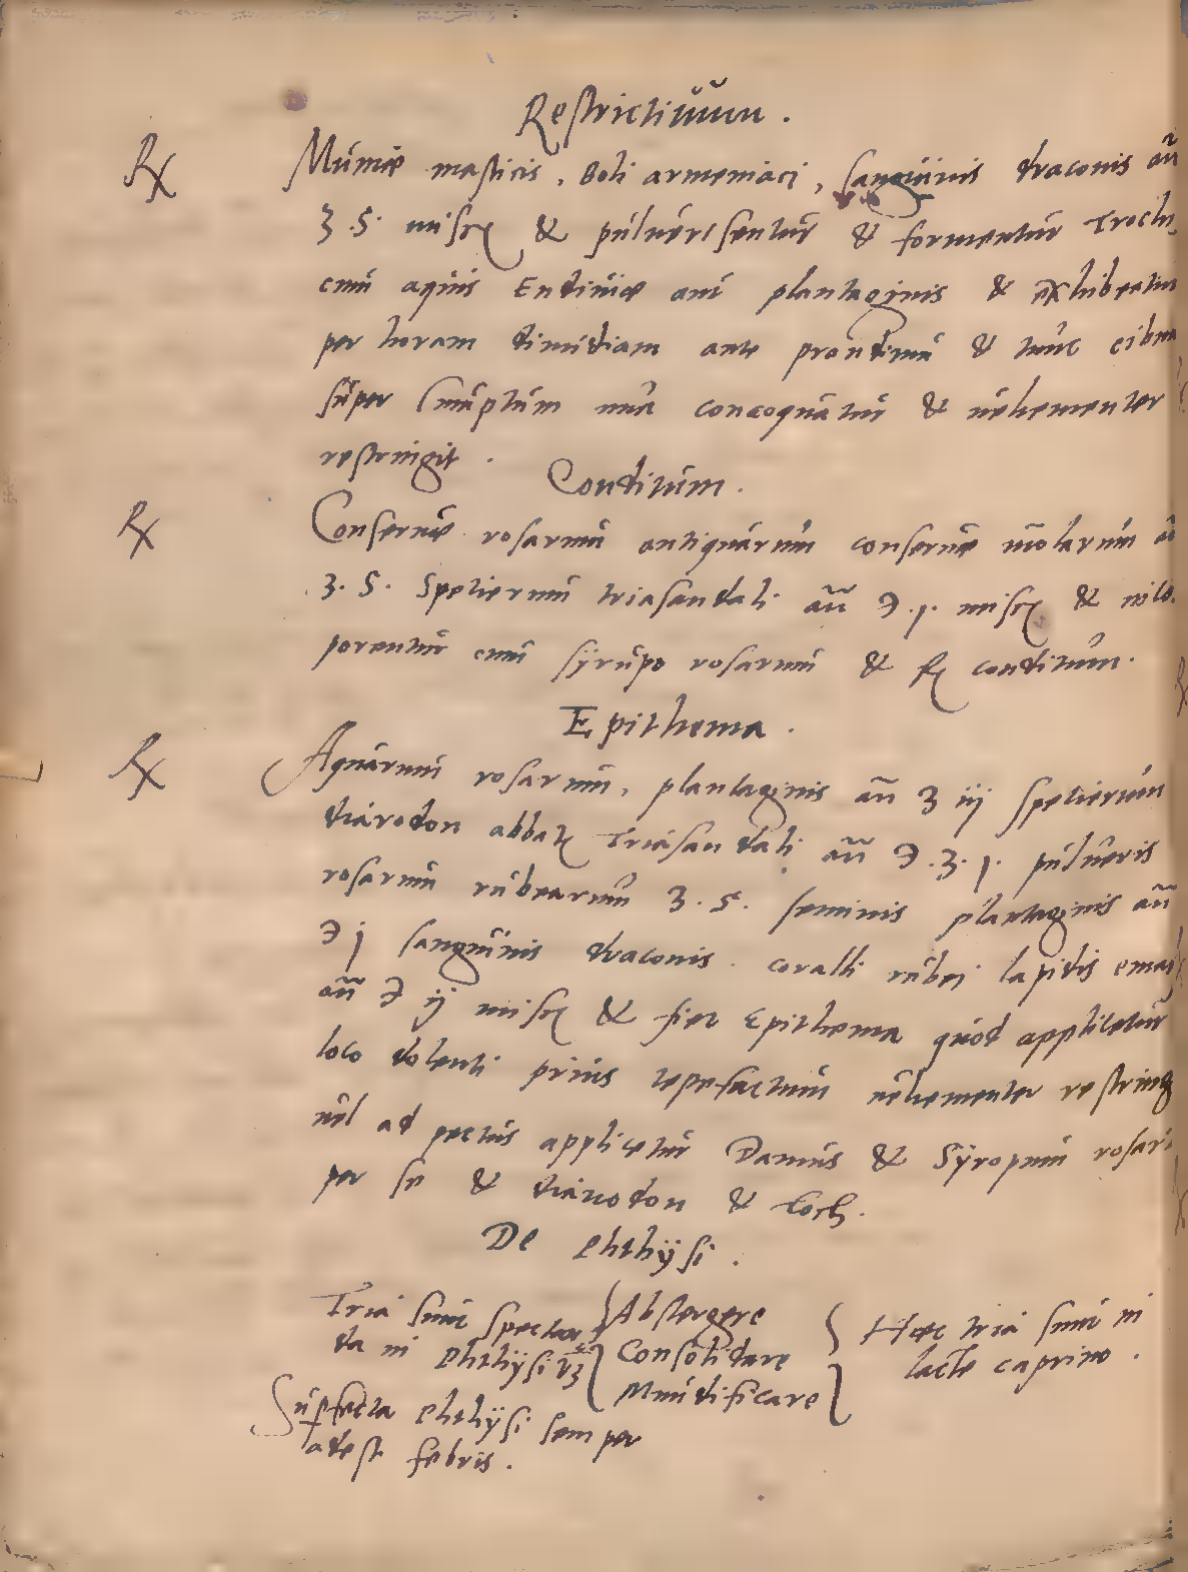 Restrictiuum.
℞ Mumiæ masticis, Boli armeniaci, sanguinis draconis añ
ʒ .s. misce & puluerisentur & formentur Troch
cum aquis Endiuiæ aut plantaginis & exhibeatur
per horam dimidiam ante prandium & tunc cibum
super sumptum una concoquatur & uehementer
restringit.
Conditum.
℞ Conseruæ rosarum antiquarum conseruæ uiolarum añ
ʒ. s. spetierum triasandali añ ℈.j. misce &
porentur cum syrupo rosarum & fiat conditum.
Epithema.
℞ Aquarum rosarum, plantaginis añ ʒ iij spetierum
diarodon abbatis Triasandali añ ℈.ʒ.j. pulueris
rosarum rubearum ʒ.s. seminis plantaginis añ
℈ j sanguinis draconis. coralli rubei lapidis emat
añ ℈ ij misce & fiet Epithema quod applicetur
loco dolenti prius tepefactum uehementer restring
uel ad pectus applicetur Damus & Syropum rosar
per se & diarrodon & Loch.
De Phthÿsi.
Tria sunt spectan
da in Phthÿsi vz
{Abstergere
Consolidare
Mundificare}
Hæc tria sunt in
lacte caprino.
Superfacta Phthÿsi semper
adest febris.